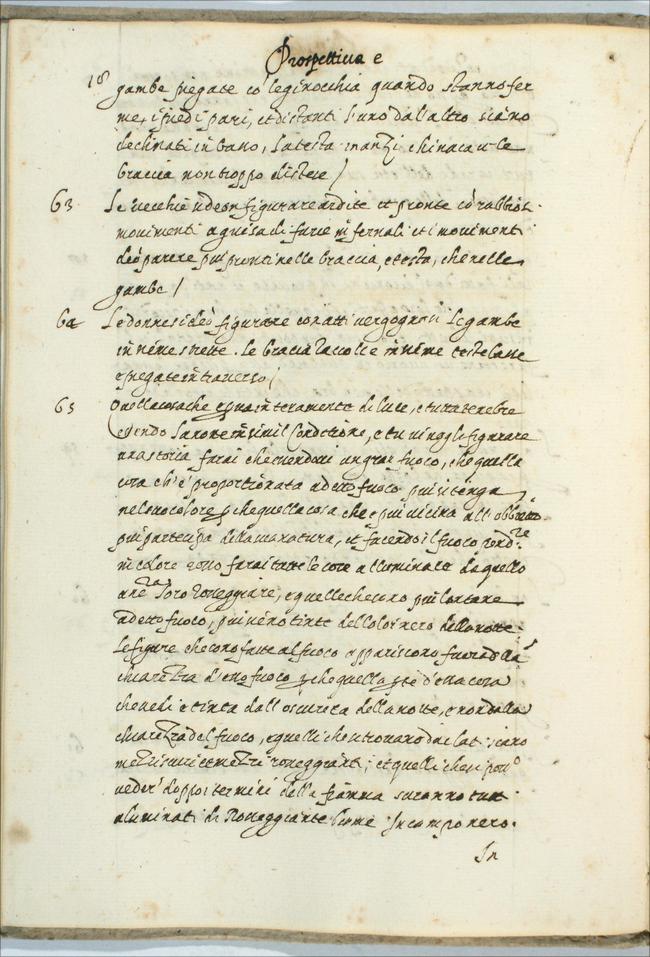 Prospettiua e
18
gambe piegate cō le ginocchia quando stanno fer
me, i piedi pari, et distanti l'uno dal'altro siano
declinati in basso, la testa inanzi chinata et le
braccia non troppo distese /
63 Le uecchie si deon figurare ardite et pronte cō rabbiosi
mouimenti a guisa di furie infernali et i mouimenti
deō parere piu pronti nelle braccia, et testa, che nelle
gambe /
64 Le donne si deō figurare con atti uergognosi le gambe
insieme strette. le braccia raccolte insieme teste basse
e piegate in trauerso /
65 Quella cosa che e priua interamente di luce, e tutta tenebre
essendo la notte in simil conditione, e tu ui uogli figurare
una storia farai che essendoui un gran fuoco, che quella
cosa ch'è proportionata a detto fuoco piu si tinga
nel suo colore, perche quella cosa che e piu uicina all'obbietto
piu partecipa della sua natura, et facendo il fuoco pendere
in colore rosso farai tutte le cose alluminate da quello
anch loro rosseggiare, e quelle che sono piu lontane
a detto fuoco, piu sieno tinte del color nero della notte
le figure che sono fatte al fuoco appariscono scure nella
chiarezza d'esso fuoco perche quella parte d'essa cosa
che uedi e tinta dall'oscurita della notte, e non dalla
chiarezza del fuoco, e quelli che si trouano dai lati siano
mezzi scuri et mezzi rosseggianti; et quelli che si possono
ueder' doppo i termini della fiamma saranno tutti
aluminati di rosseggiante lume in campo nero.
In